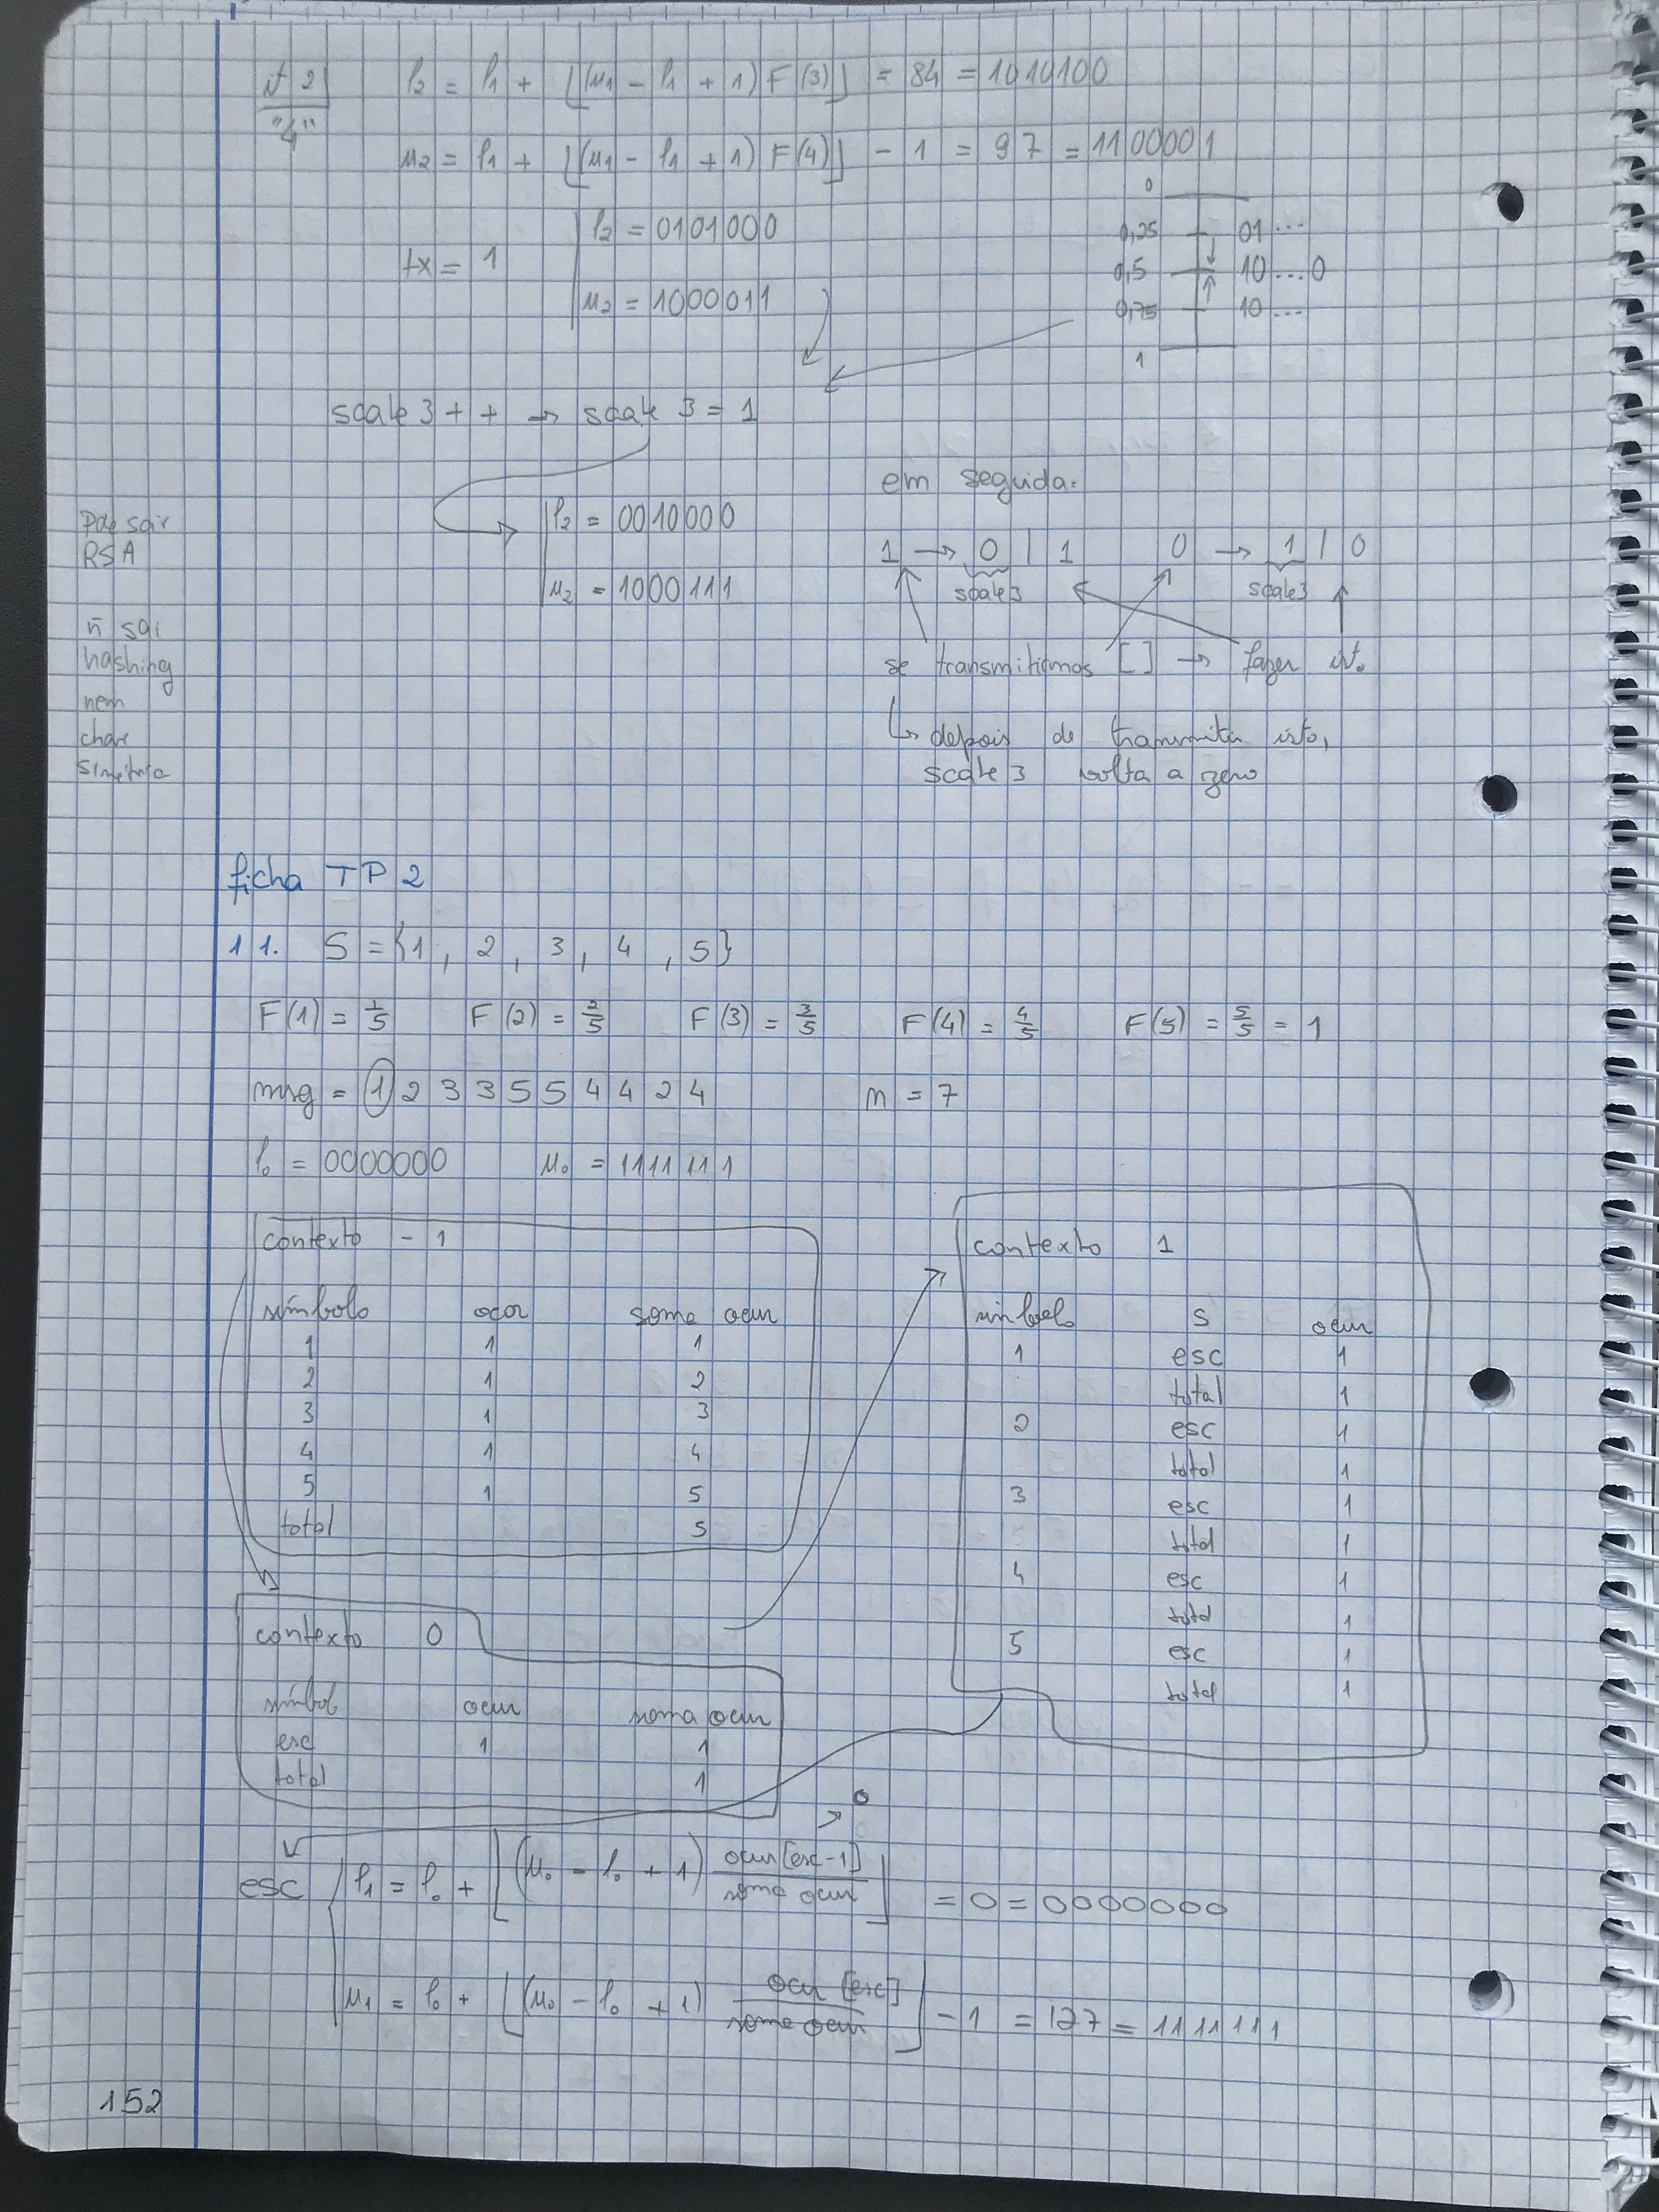 it 2 l2 = l1 + ⌊(u1 - l1 + 1) F(3)⌋ = 84 = 1010100
"4"
u2 = l1 + ⌊(u1 - l1 + 1) F(4)⌋ - 1 = 97 = 1100001
tx = 1
l2 = 0101000
u2 = 1000011
0
0,25 01...
0,5 10...0
0,75 10...
1
scale 3 + + → scale 3 = 1
l2 = 0010000
u2 = 1000111
em seguida:
1 → 0 | 1 0 → 1 | 0
scale3 scale3
se transmitirmos [ ] → fazer isto
↳ depois de transmitir isto,
scale 3 volta a zero
Pode sair
RSA
ñ sai
hashing
nem
chave
simétrica
ficha TP 2
11. S = {1, 2, 3, 4, 5}
F(1) = 1/5 F(2) = 2/5 F(3) = 3/5 F(4) = 4/5 F(5) = 5/5 = 1
msg = 1 2 3 3 5 5 4 4 2 4 m = 7
l0 = 0000000 u0 = 1111111
contexto - 1
símbolo ocor soma ocur
1 1 1
2 1 2
3 1 3
4 1 4
5 1 5
total 5
contexto 0
símbol ocur soma ocur
esc 1 1
total 1
contexto 1
símbolo S ocur
1 esc 1
total 1
2 esc 1
total 1
3 esc 1
total 1
4 esc 1
total 1
5 esc 1
total 1
0
esc l1 = l0 + ⌊(u0 - l0 + 1) ocur[esc-1] / soma ocur⌋ = 0 = 0000000
u1 = l0 + ⌊(u0 - l0 + 1) ocur[esc] / soma ocur⌋ - 1 = 127 = 1111111
152